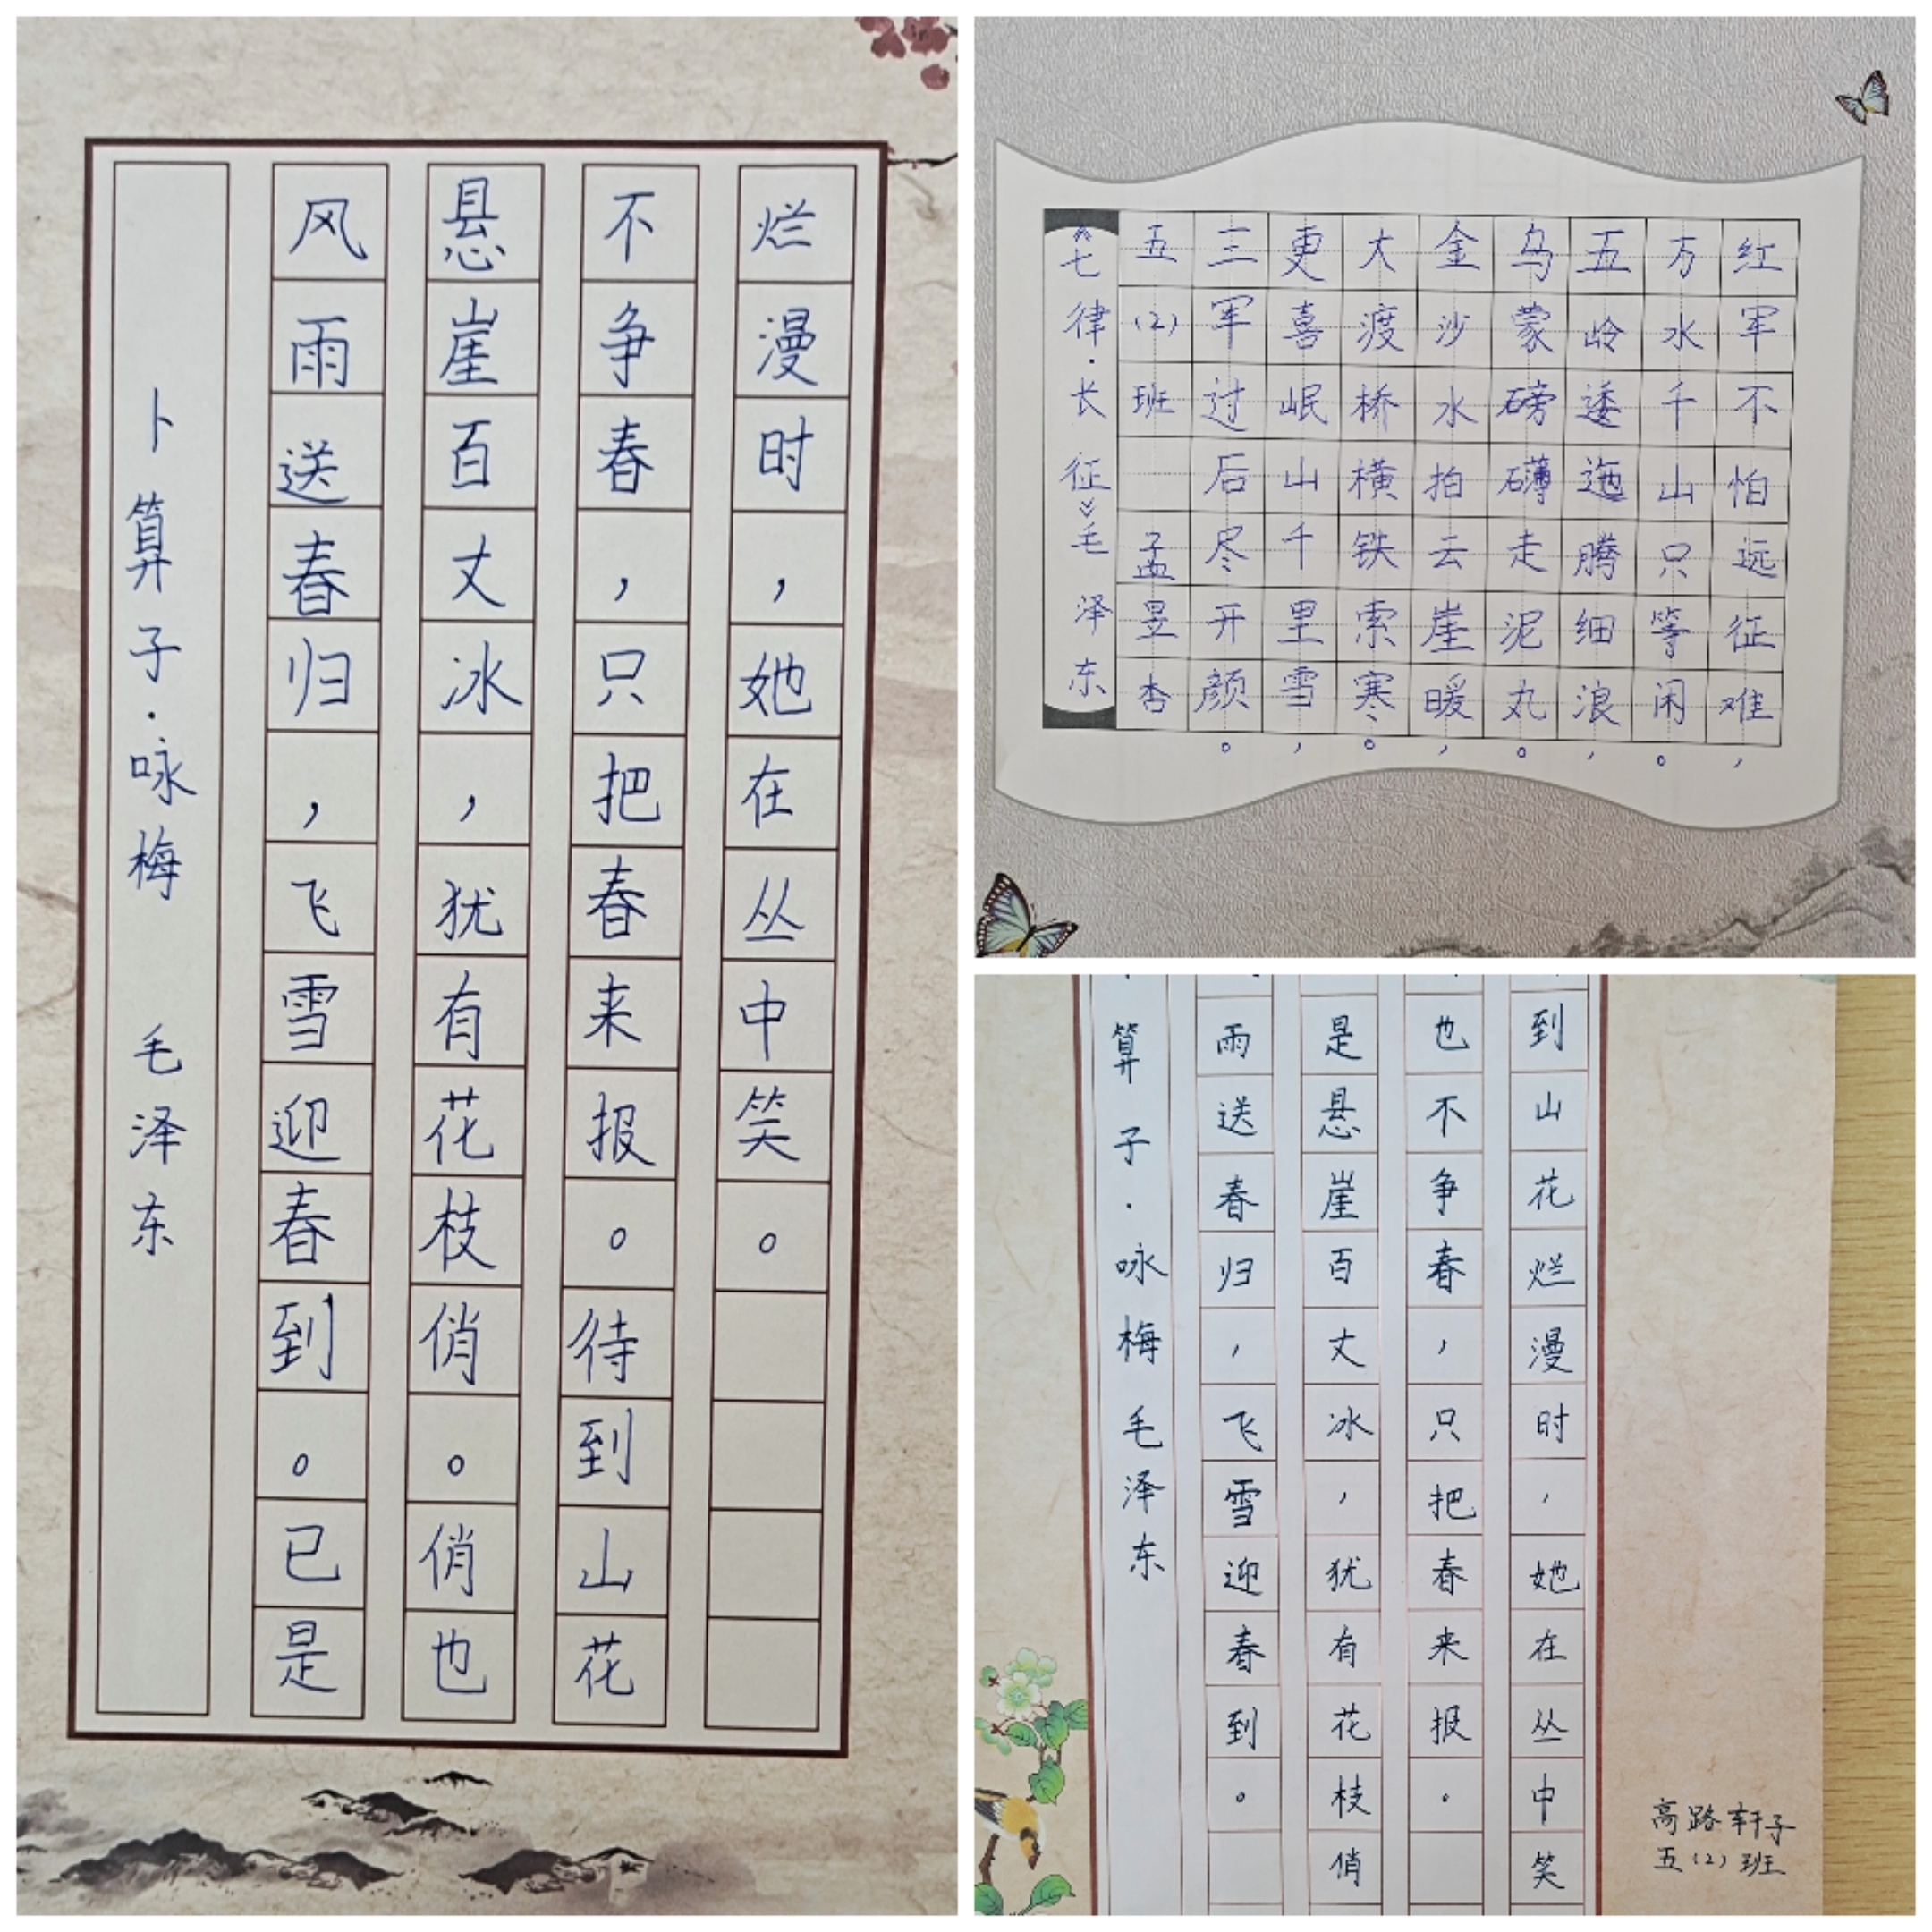 卜算子·咏梅 毛泽东
风雨送春归，飞雪迎春到。已是
悬崖百丈冰，犹有花枝俏。俏也
不争春，只把春来报。待到山花
烂漫时，她在丛中笑。
《七律·长征》毛泽东
红军不怕远征难，
万水千山只等闲。
五岭逶迤腾细浪，
乌蒙磅礴走泥丸。
金沙水拍云崖暖，
大渡桥横铁索寒。
更喜岷山千里雪，
三军过后尽开颜。
五(2)班 孟昱杏
算子·咏梅 毛泽东
雨送春归，飞雪迎春到。
是悬崖百丈冰，犹有花枝俏
也不争春，只把春来报。
到山花烂漫时，她在丛中笑
高路轩子
五(2)班